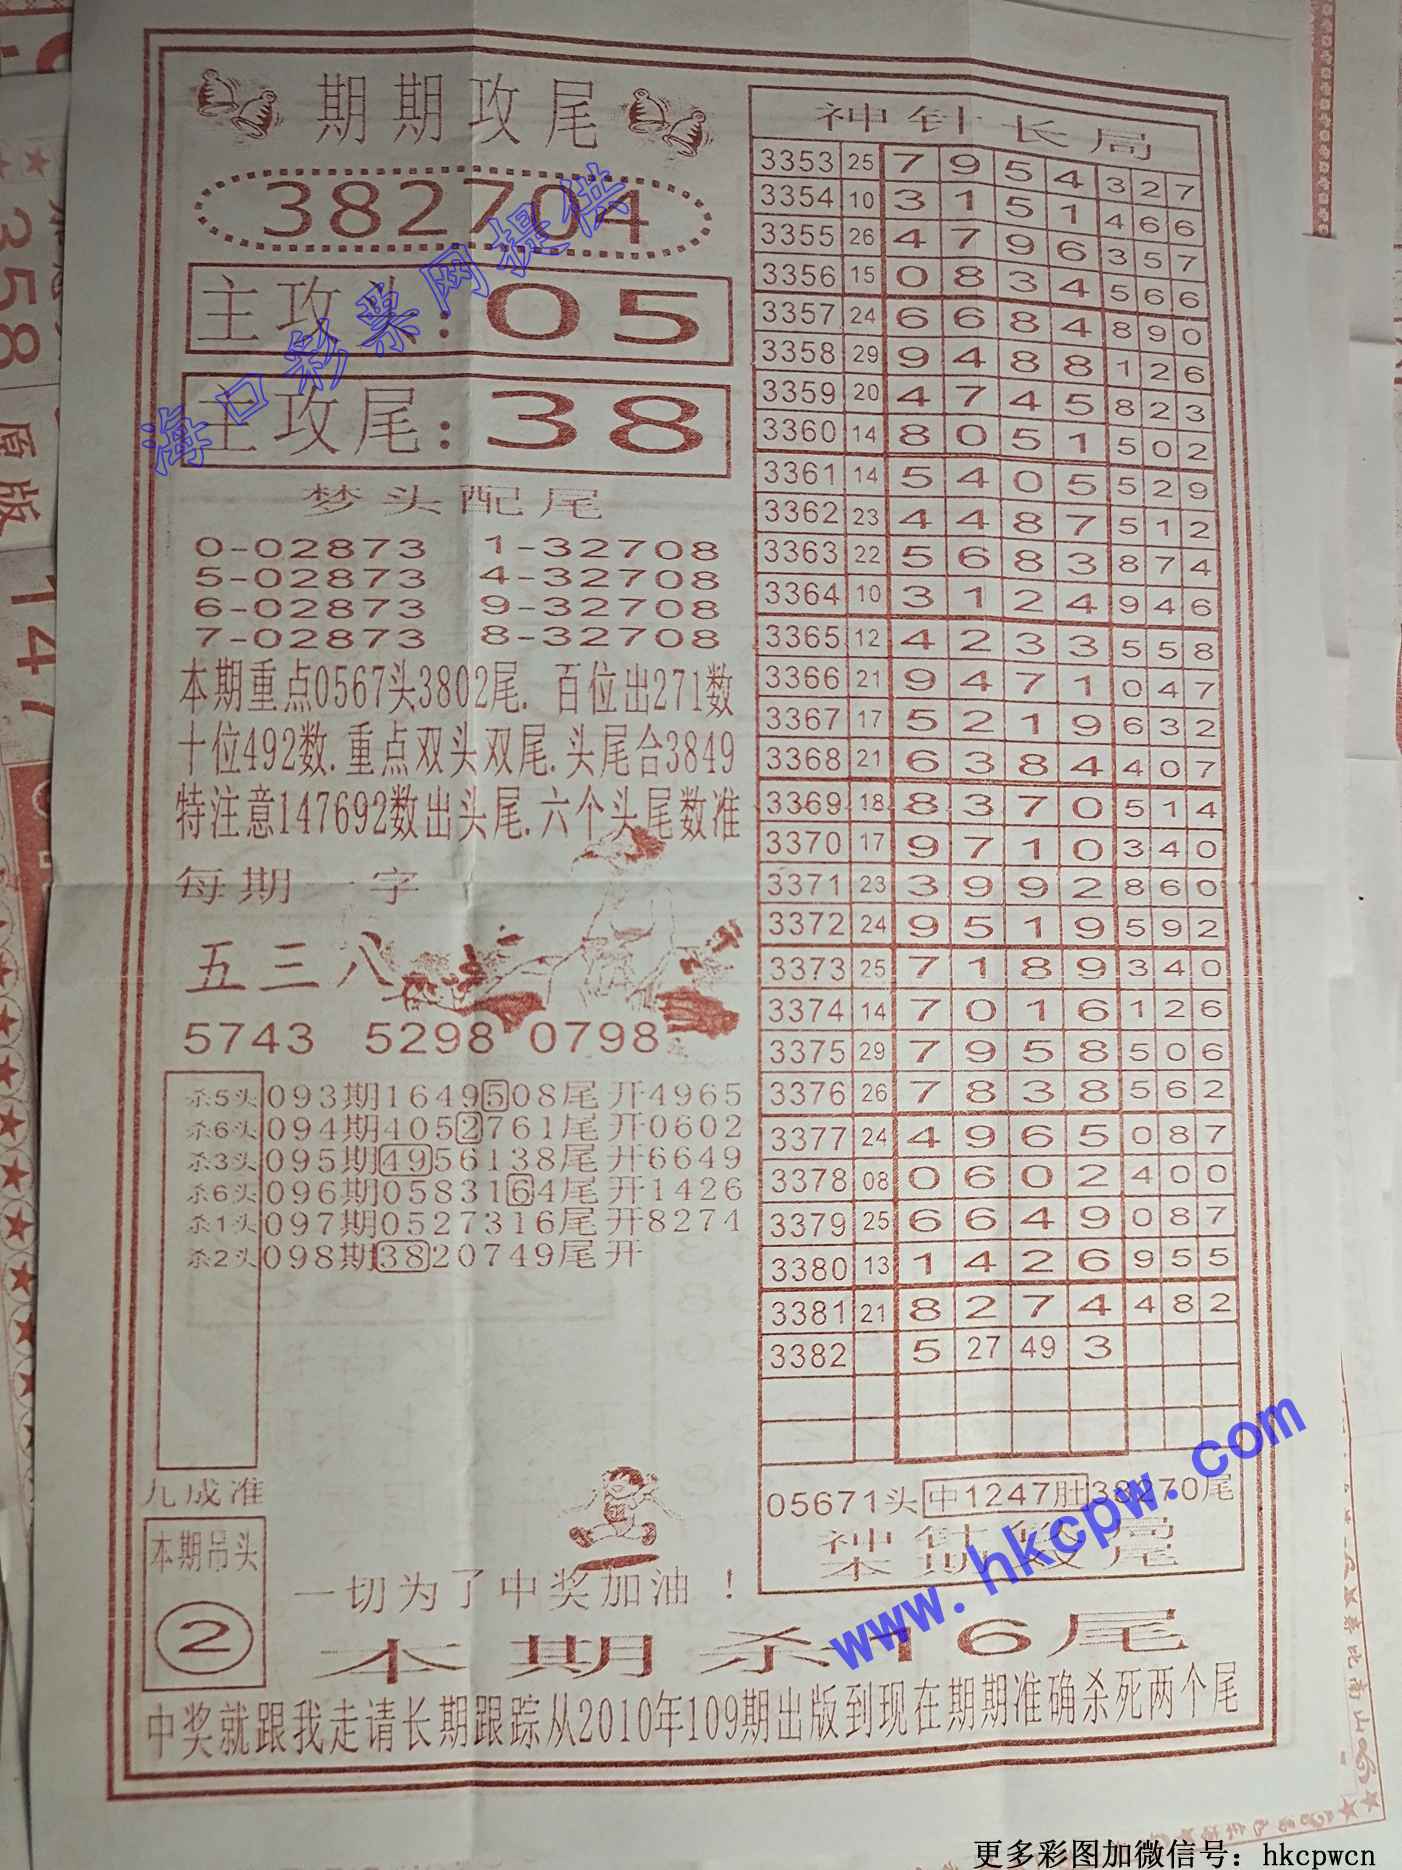 期期攻尾
382704
主攻头:05
主攻尾:38
梦头配尾
0-02873 1-32708
5-02873 4-32708
6-02873 9-32708
7-02873 8-32708
本期重点0567头3802尾. 百位出271数
十位492数.重点双头双尾.头尾合3849
特注意147692数出头尾.六个头尾数准
每期一字
五三八
5743 5298 0798
杀5头 093期1649508尾开4965
杀6头 094期4052761尾开0602
杀3头 095期4956138尾开6649
杀6头 096期0583164尾开1426
杀1头 097期0527316尾开8274
杀2头 098期3820749尾开
九成准
本期吊头
2
一切为了中奖加油!
神针长局
3353 25 7 9 5 4 3 2 7
3354 10 3 1 5 1 4 6 6
3355 26 4 7 9 6 3 5 7
3356 15 0 8 3 4 5 6 6
3357 24 6 6 8 4 8 9 0
3358 29 9 4 8 8 1 2 6
3359 20 4 7 4 5 8 2 3
3360 14 8 0 5 1 5 0 2
3361 14 5 4 0 5 5 2 9
3362 23 4 4 8 7 5 1 2
3363 22 5 6 8 3 8 7 4
3364 10 3 1 2 4 9 4 6
3365 12 4 2 3 3 5 5 8
3366 21 9 4 7 1 0 4 7
3367 17 5 2 1 9 6 3 2
3368 21 6 3 8 4 4 0 7
3369 18 8 3 7 0 5 1 4
3370 17 9 7 1 0 3 4 0
3371 23 3 9 9 2 8 6 0
3372 24 9 5 1 9 5 9 2
3373 25 7 1 8 9 3 4 0
3374 14 7 0 1 6 1 2 6
3375 29 7 9 5 8 5 0 6
3376 26 7 8 3 8 5 6 2
3377 24 4 9 6 5 0 8 7
3378 08 0 6 0 2 4 0 0
3379 25 6 6 4 9 0 8 7
3380 13 1 4 2 6 9 5 5
3381 21 8 2 7 4 4 8 2
3382 5 27 49 3
05671头 中1247肚 38270尾
神针
本期
本期杀16尾
中奖就跟我走请长期跟踪从2010年109期出版到现在期期准确杀死两个尾
海口彩票网提供
www.hkcpw.com
358
原版
147
更多彩图加微信号: hkcpwcn